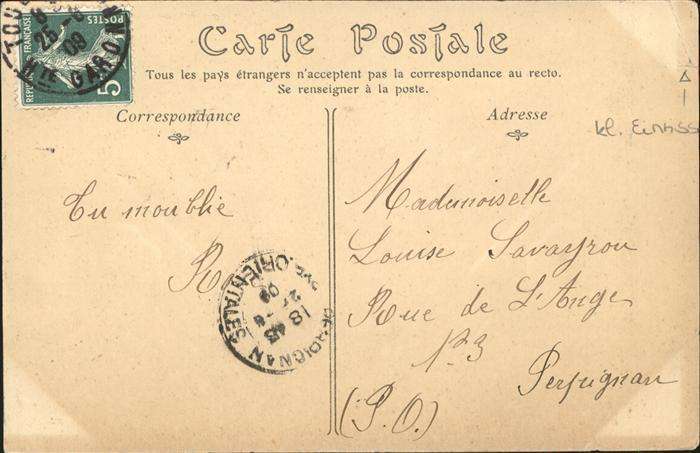 Carte Postale
Tous les pays étrangers n'acceptent pas la correspondance au recto.
Se renseigner à la poste.
Correspondance
Adresse
POSTES
5
GARONNE
25-8
09
kl. Einriss
Tu moublie
R
PERPIGNAN
PYR. ORIENTALES
18 45
27-8
09
Mademoiselle
Louise Savayrou
Rue de L'Ange
N. 3
Perpignan
(P. O.)